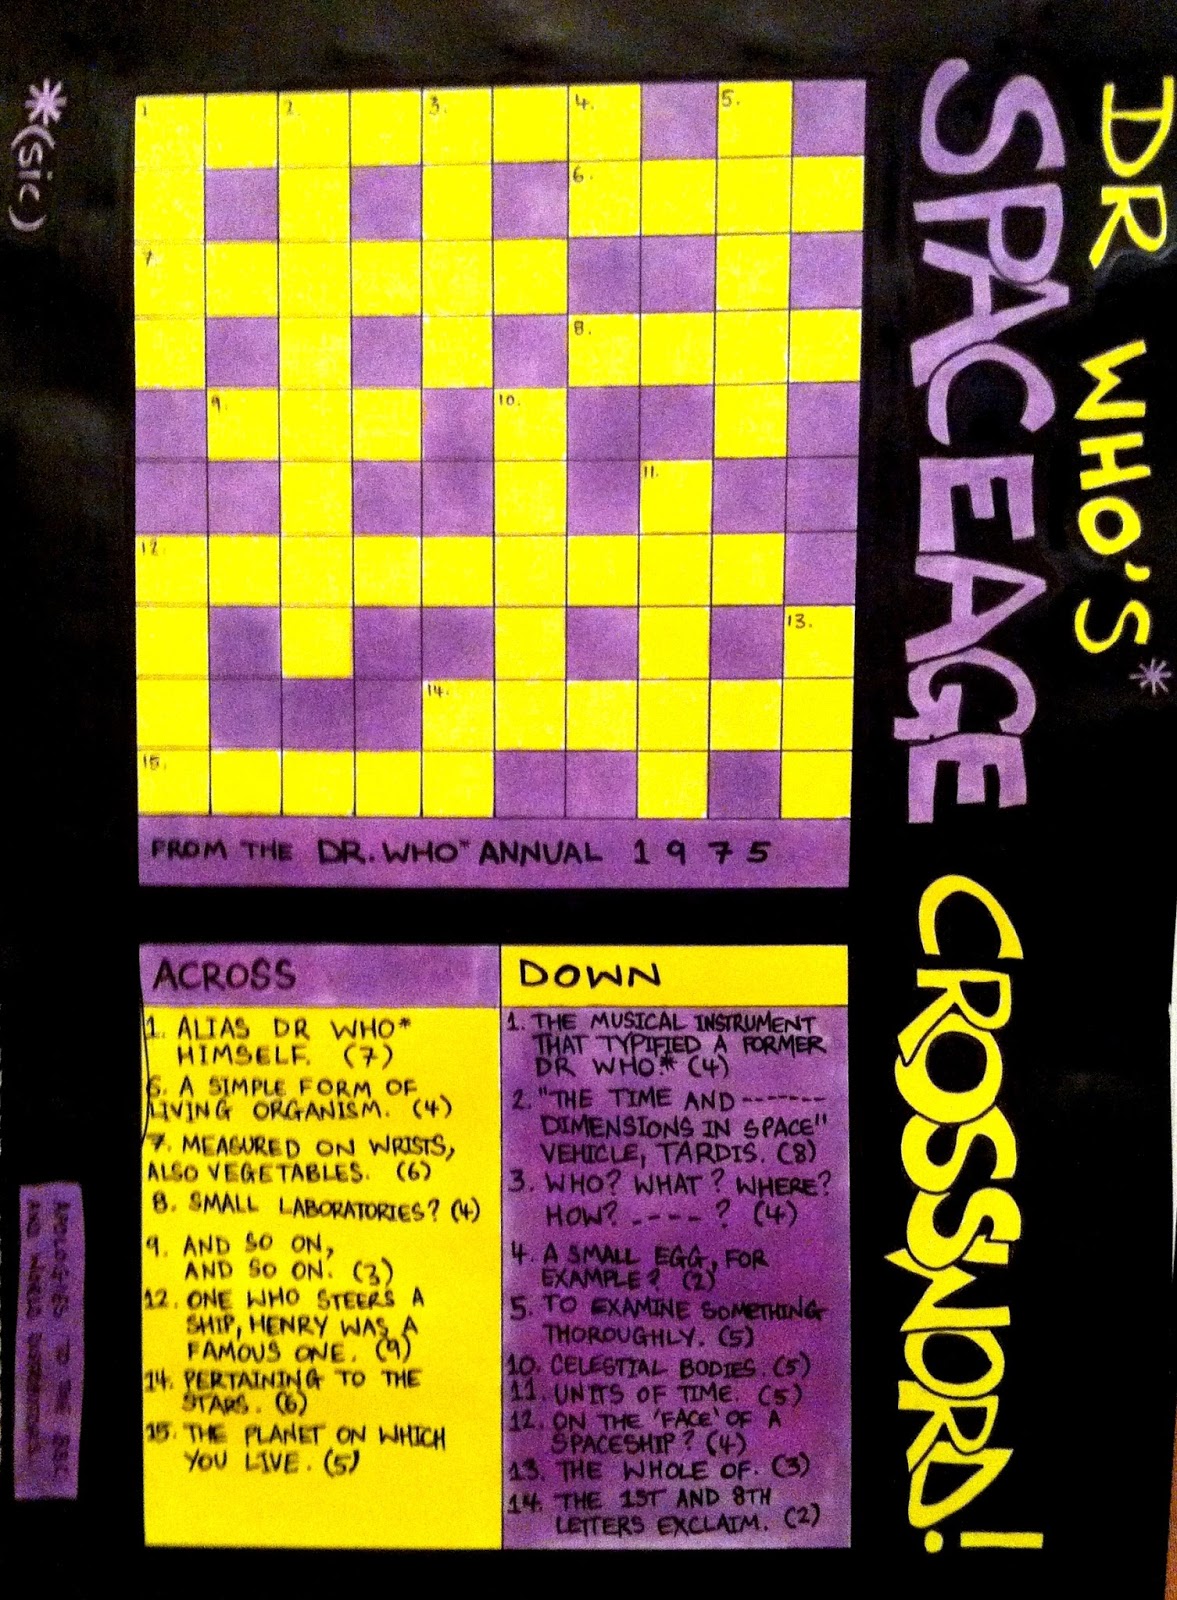 DR WHO'S*
SPACEAGE CROSSWORD!
*(sic)
1. 2. 3. 4. 5.
6.
7.
8.
9. 10.
11.
12.
13.
14.
15.
FROM THE DR. WHO" ANNUAL 1975
ACROSS
1. ALIAS DR WHO*
HIMSELF. (7)
6. A SIMPLE FORM OF
LIVING ORGANISM. (4)
7. MEASURED ON WRISTS,
ALSO VEGETABLES. (6)
8. SMALL LABORATORIES? (4)
9. AND SO ON,
AND SO ON. (3)
12. ONE WHO STEERS A
SHIP, HENRY WAS A
FAMOUS ONE. (9)
14. PERTAINING TO THE
STARS. (6)
15. THE PLANET ON WHICH
YOU LIVE. (5)
DOWN
1. THE MUSICAL INSTRUMENT
THAT TYPIFIED A FORMER
DR WHO.* (4)
2. "THE TIME AND -------
DIMENSIONS IN SPACE"
VEHICLE, TARDIS. (8)
3. WHO? WHAT? WHERE?
HOW? ----? (4)
4. A SMALL EGG, FOR
EXAMPLE? (2)
5. TO EXAMINE SOMETHING
THOROUGHLY. (5)
10. CELESTIAL BODIES. (5)
11. UNITS OF TIME. (5)
12. ON THE 'FACE' OF A
SPACESHIP? (4)
13. THE WHOLE OF. (3)
14. THE 1ST AND 8TH
LETTERS EXCLAIM. (2)
APOLOGIES TO THE BBC
AND WORLD